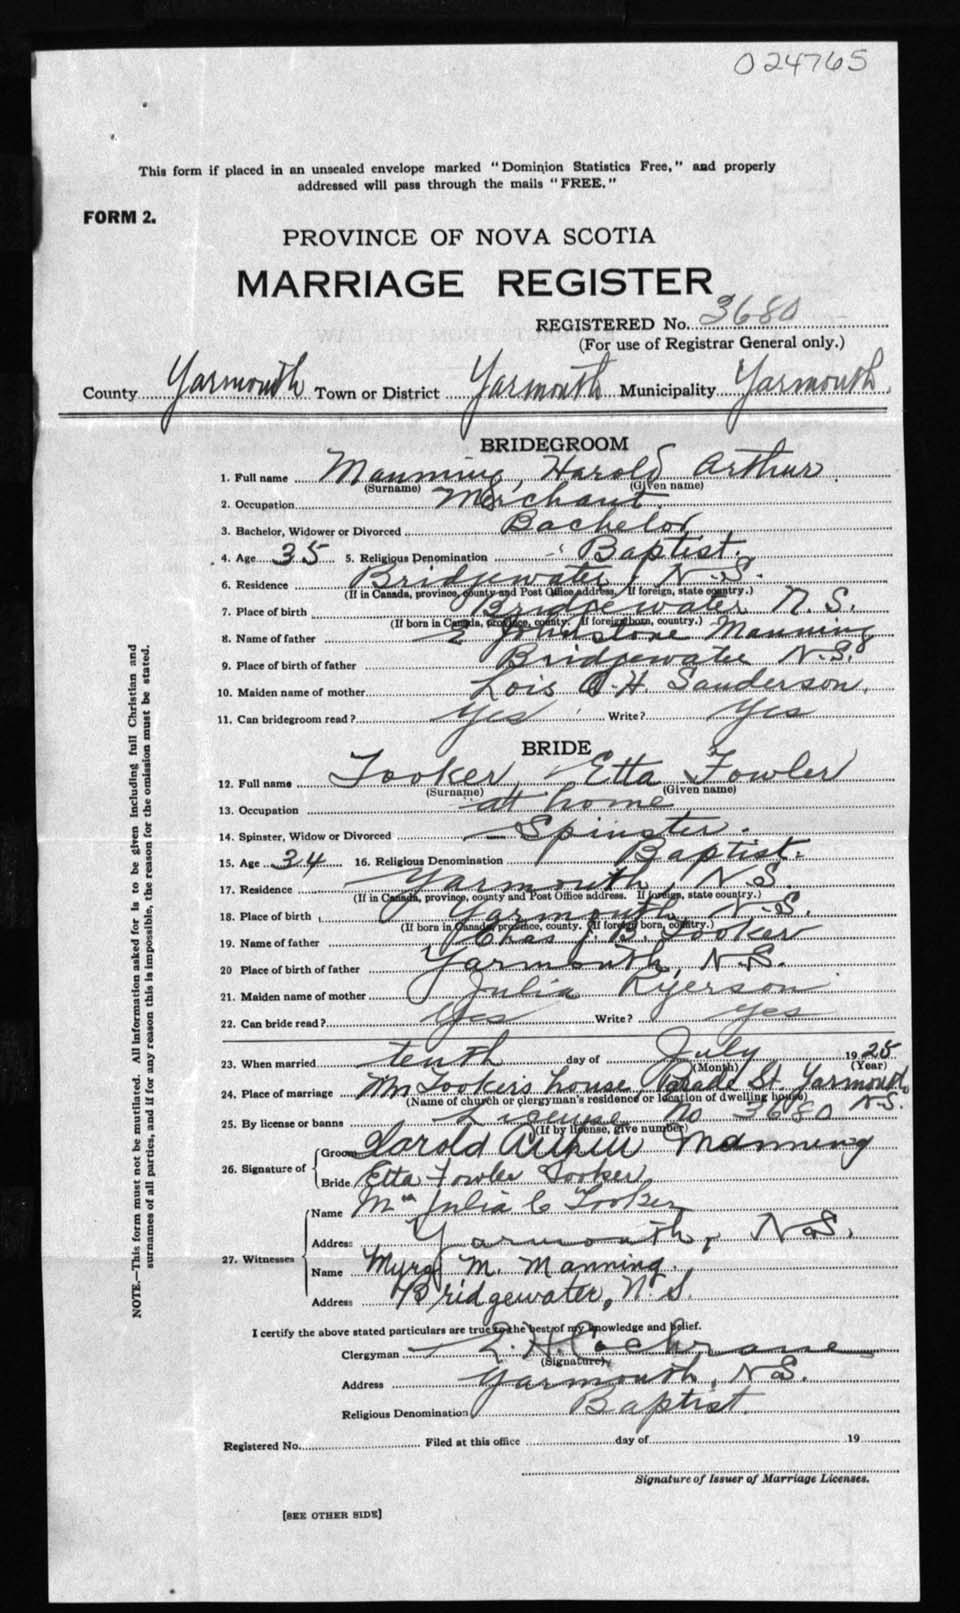 024765
This form if placed in an unsealed envelope marked "Dominion Statistics Free," and properly
addressed will pass through the mails "FREE."
FORM 2.
PROVINCE OF NOVA SCOTIA
MARRIAGE REGISTER
REGISTERED No. 3680
(For use of Registrar General only.)
County Yarmouth Town or District Yarmouth Municipality Yarmouth
BRIDEGROOM
1. Full name Manning, Harold Arthur
(Surname) (Given name)
2. Occupation Merchant
3. Bachelor, Widower or Divorced Bachelor
4. Age 35 5. Religious Denomination Baptist.
6. Residence Bridgewater, N.S.
(If in Canada, province, county and Post Office address. If foreign, state country.)
7. Place of birth Bridgewater N.S.
(If born in Canada, province, county. If foreign born, country.)
8. Name of father E Johnstone Manning
9. Place of birth of father Bridgewater N.S.
10. Maiden name of mother Lois H. Sanderson.
11. Can bridegroom read? Yes Write? Yes
BRIDE
12. Full name Tooker, Etta Fowler
(Surname) (Given name)
13. Occupation at home
14. Spinster, Widow or Divorced Spinster.
15. Age 34 16. Religious Denomination Baptist.
17. Residence Yarmouth, N.S.
(If in Canada, province, county and Post Office address. If foreign, state country.)
18. Place of birth Yarmouth, N.S.
(If born in Canada, province, county. If foreign born, country.)
19. Name of father Chas J. B. Tooker
20 Place of birth of father Yarmouth, N.S.
21. Maiden name of mother Julia Ryerson
22. Can bride read? Yes Write? Yes
23. When married tenth day of July 1925
(Month) (Year)
24. Place of marriage Tooker's house St. Yarmouth
N.S.
(Name of church or clergyman's residence or location of dwelling house)
25. By license or banns License No 3680
(If by license, give number)
26. Signature of Groom Harold Arthur Manning
Bride Etta Fowler Tooker
27. Witnesses Name Mrs Julia C Tooker
Address Yarmouth, N.S.
Name Myra M. Manning.
Address Bridgewater, N.S.
I certify the above stated particulars are true to the best of my knowledge and belief.
Clergyman E. H. Cochrane
(Signature)
Address Yarmouth, N.S.
Religious Denomination Baptist
Registered No. Filed at this office day of 19
Signature of Issuer of Marriage Licenses.
[SEE OTHER SIDE]
NOTE.—This form must not be mutilated. All information asked for is to be given including full Christian and
surnames of all parties, and if for any reason this is impossible, the reason for the omission must be stated.